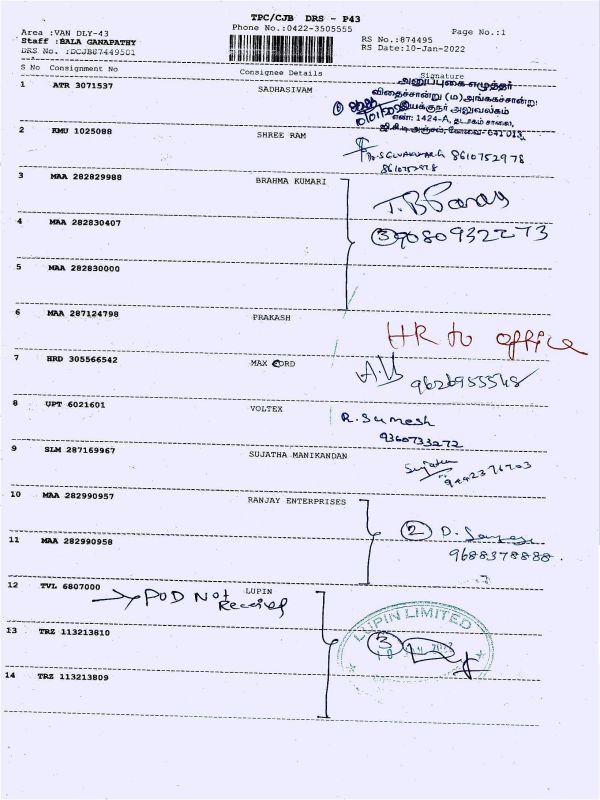 TPC/CJB DRS - P43
Phone No.:0422-3505555
Page No.:1
Area :VAN DLY-43
Staff :BALA GANAPATHY
DRS No. :DCJB87449501
RS No.:874495
RS Date:10-Jan-2022
S No Consignment No Consignee Details Signature
1 ATR 3071537 SADHASIVAM
அனுப்புகை எழுத்தர்
விதைச்சான்று (ம) அங்ககச்சான்று
இயக்குநர் அலுவலகம்
எண்: 1424-A, தடாகம் சாலை,
ஜி.சி.டி அஞ்சல், கோவை-641 013.
2 KMU 1025088 SHREE RAM
8610752978
8610752978
3 MAA 282829988 BRAHMA KUMARI
4 MAA 282830407
3 9080932273
5 MAA 282830000
6 MAA 287124798 PRAKASH
HR to office
7 HRD 305566542 MAX CORD
8 UPT 6021601 VOLTEX
R. Sumesh
9360733272
9 SLM 287169967 SUJATHA MANIKANDAN
9442376703
10 MAA 282990957 RANJAY ENTERPRISES
2
11 MAA 282990958
9688378888
12 TVL 6807000 LUPIN
POD Not
Received
LUPIN LIMITED
3
13 TRZ 113213810
14 TRZ 113213809